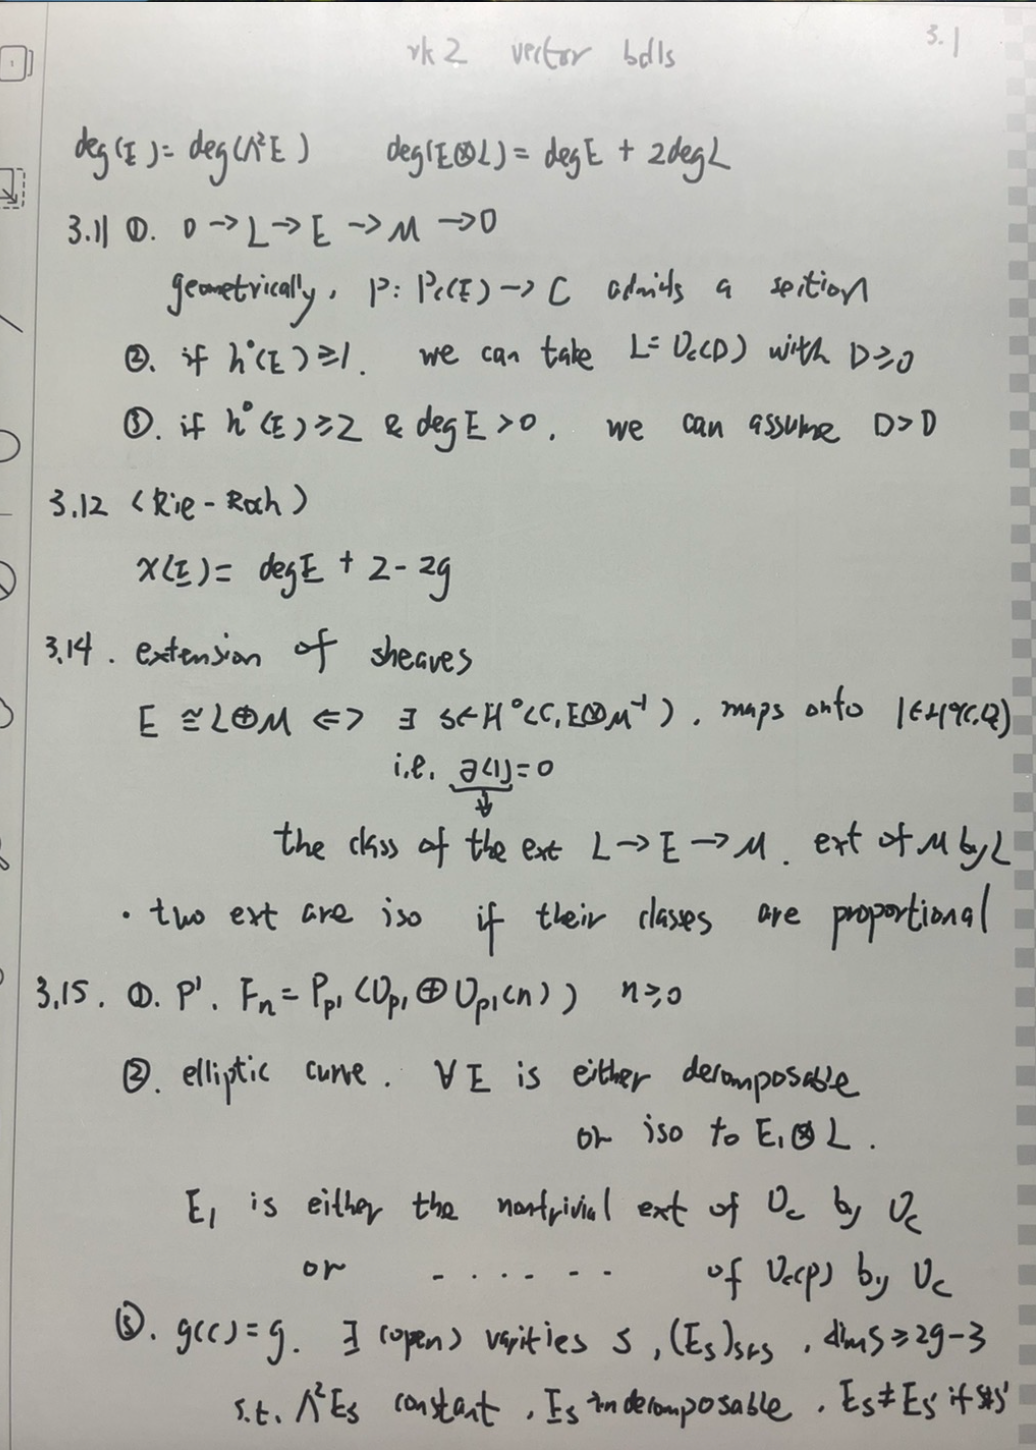 rk2 vector bdls 3.1
deg(E)= deg(Λ²E) deg(E⊗L)= degE + 2degL
3.11 ①. 0→L→E→M→0
geometrically, p: P_C(E)→C admits a section
②. if h°(E)≥1. we can take L=O_C(D) with D≥0
③. if h°(E)≥2 & degE>0, we can assume D>0
3.12 <Rie-Roch>
χ(E)= degE + 2-2g
3.14. extension of sheaves
E ≅ L⊕M <=> ∃ s∈H°(C,E⊗M⁻¹). maps onto 1∈H°(C,O)
i.e. ∂(1)=0
the class of the ext L→E→M. ext of M by L
· two ext are iso if their classes are proportional
3.15. ①. P¹. Fn=P_P¹(O_P¹⊕O_P¹(n)) n≥0
②. elliptic curve. ∀E is either decomposable
or iso to E₁⊗L.
E₁ is either the nontrivial ext of O_C by O_C
or ------ of O_C(p) by O_C
③. g(C)=g. ∃ (open) varities S, (Es)s∈S, dimS≥2g-3
s.t. Λ²Es constant, Es indecomposable, Es≇Es' if s≠s'